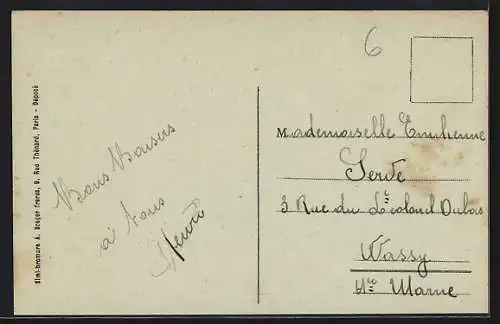 6
Simi-bromure A. Breger frères, 9, Rue Thénard, Paris - Déposé
Bons Baisers
à tous
Henri
Mademoiselle Emilienne
3 Rue du Dubois
Wassy
Hte Marne